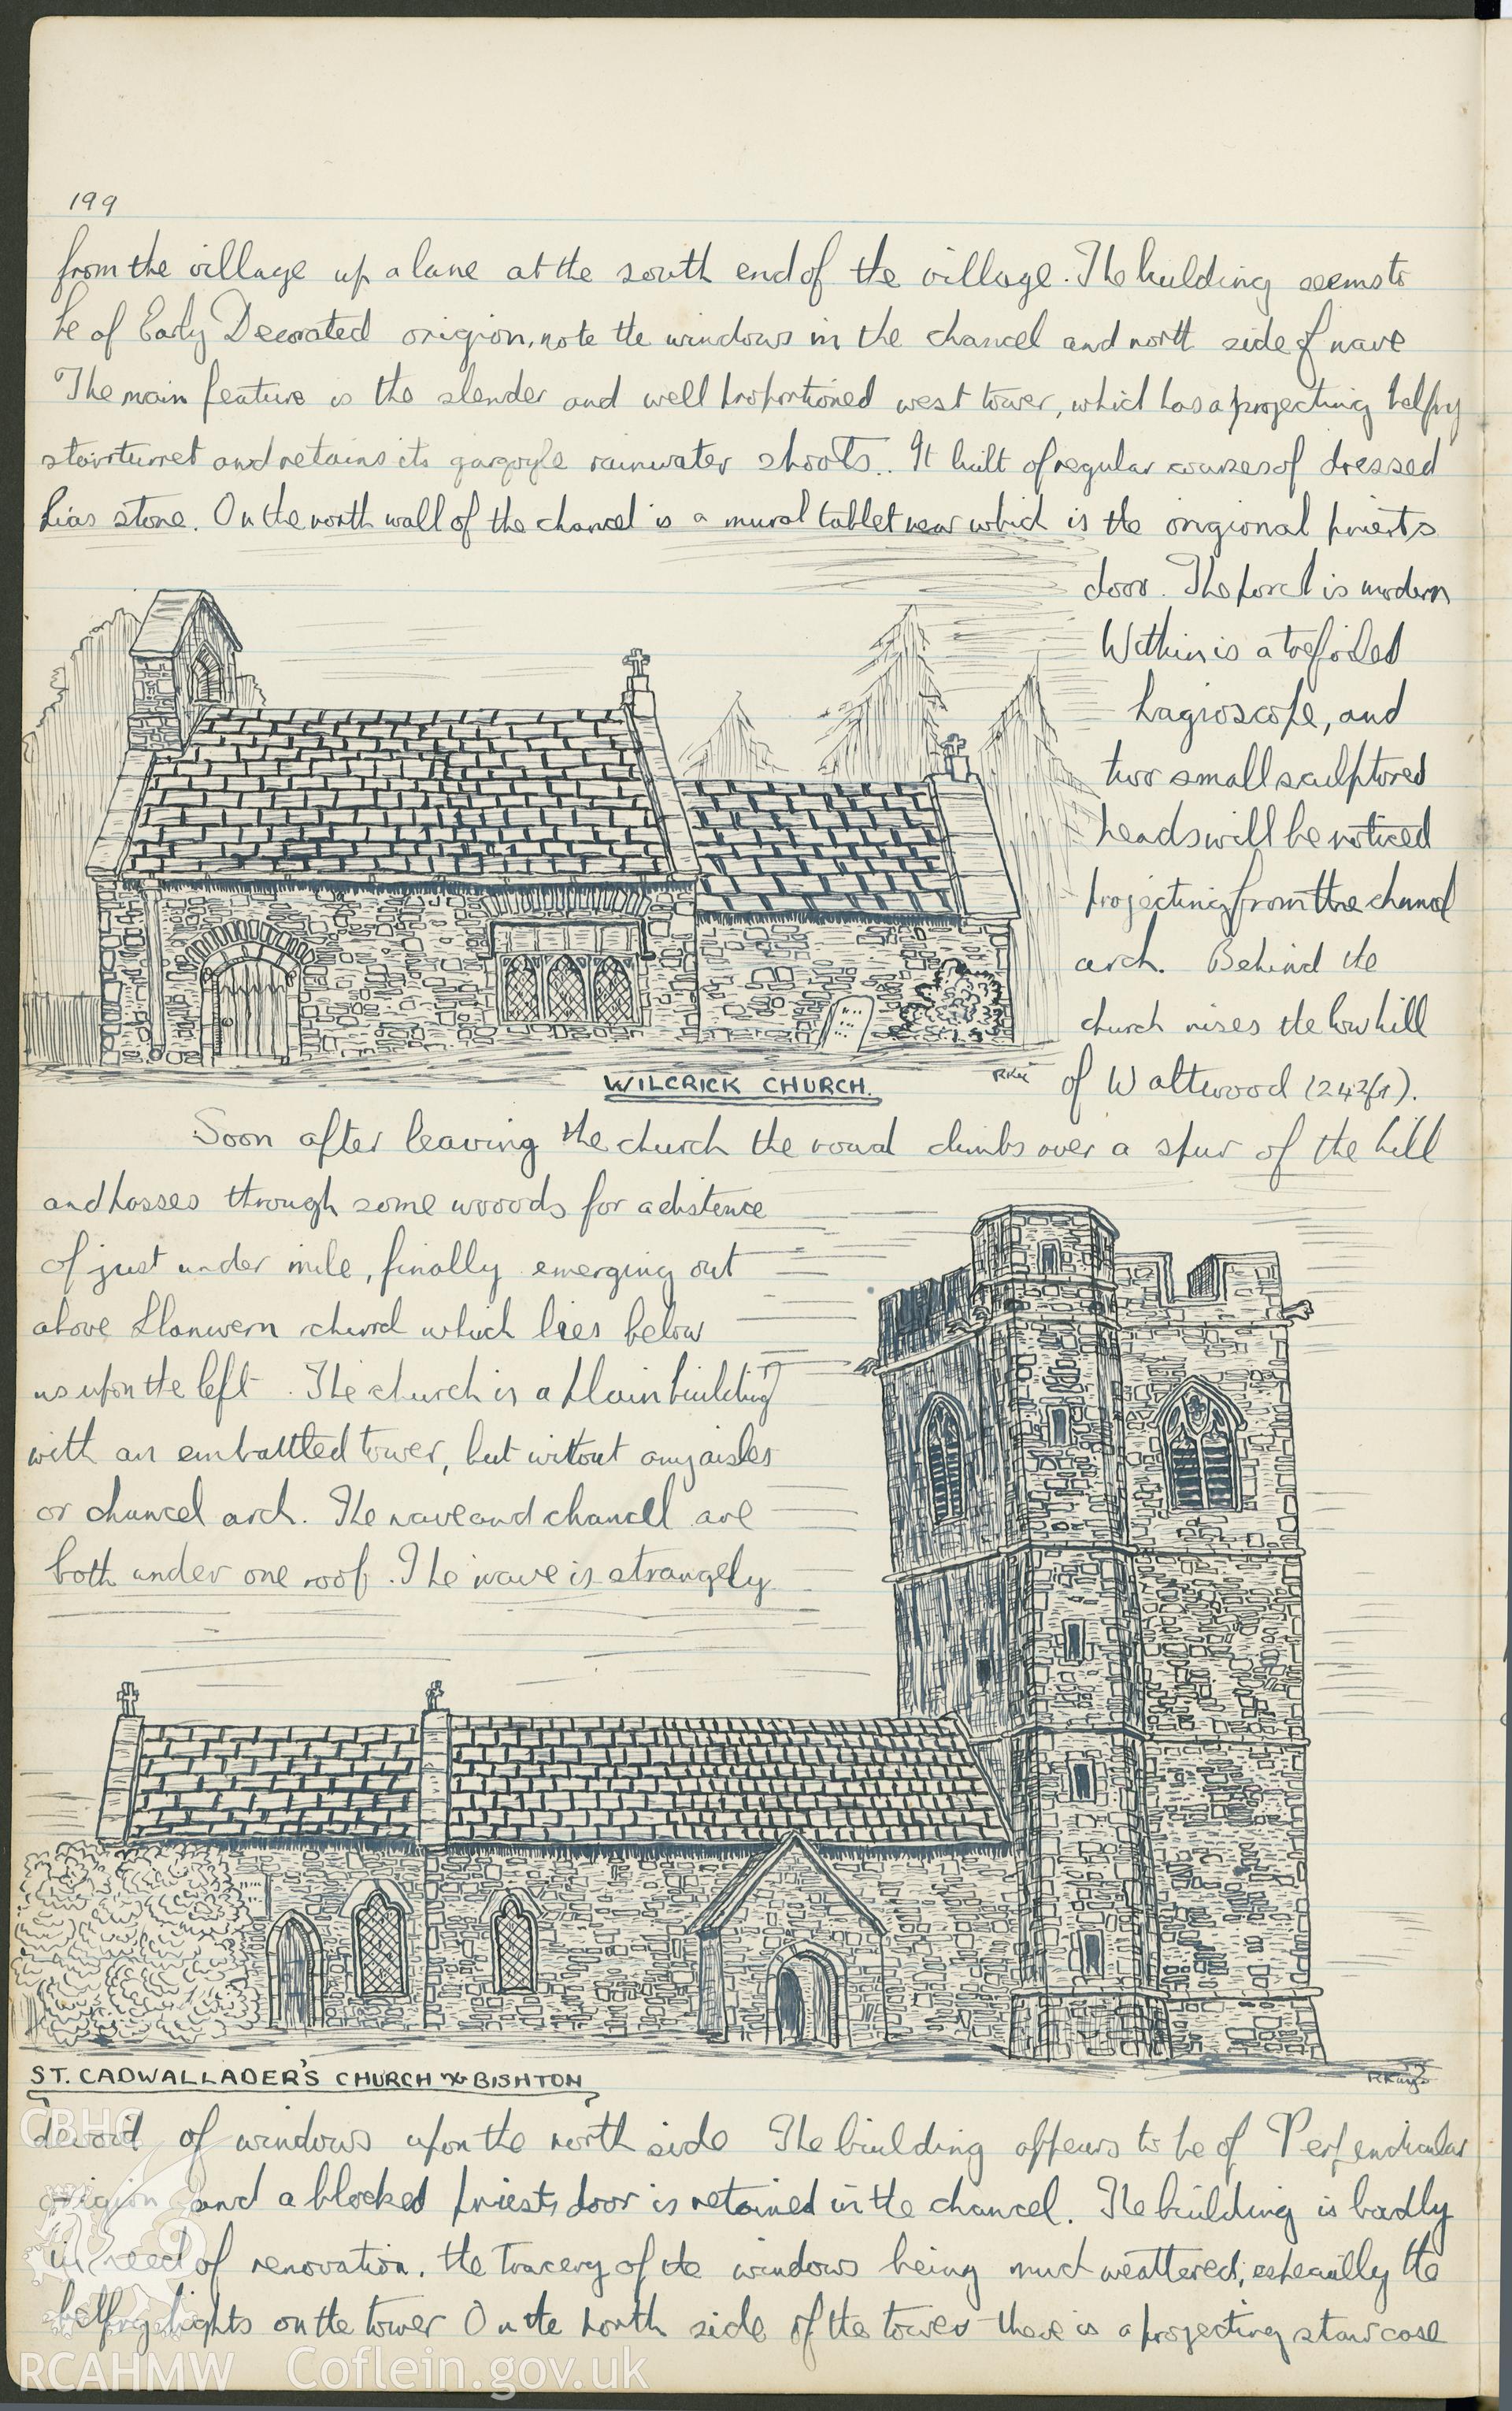 199
from the village up a lane at the south end of the village. The building seems to
be of Early Decorated origion, note the windows in the chancel and north side of nave
The main feature is the slender and well proportioned west tower, which has a projecting belfry
stairturret and retains its gargoyle rainwater shoots.. It built of regular courses of dressed
Lias stone. On the north wall of the chancel is a mural tablet near which is the origional priests
door. The porch is modern
Within is a trefoiled
hagioscope, and
two small sculptored
heads will be noticed
projecting from the chancel
arch. Behind the
church rises the low hill
of Waltwood (242ft).
WILCRICK CHURCH.
Soon after leaving the church the road climbs over a spur of the hill
and passes through some wooods for a distence
of just under mile, finally emerging out
above Llanwern church which lies below
us upon the left. The church is a plain building
with an embattled tower, but without any aisles
or chancel arch. The nave and chancel are
both under one roof. The nave is strangely
ST. CADWALLADER'S CHURCH BISHTON
devoid of windows upon the north side The building appears to be of Perpendicular
origion and a blocked priests door is retained in the chancel. The building is badly
in need of renovation. the tracery of the windows being much weathered, espeacilly the
belfry lights on the tower On the north side of the tower there is a projecting staircase
CBHC
RCAHMW Coflein.gov.uk